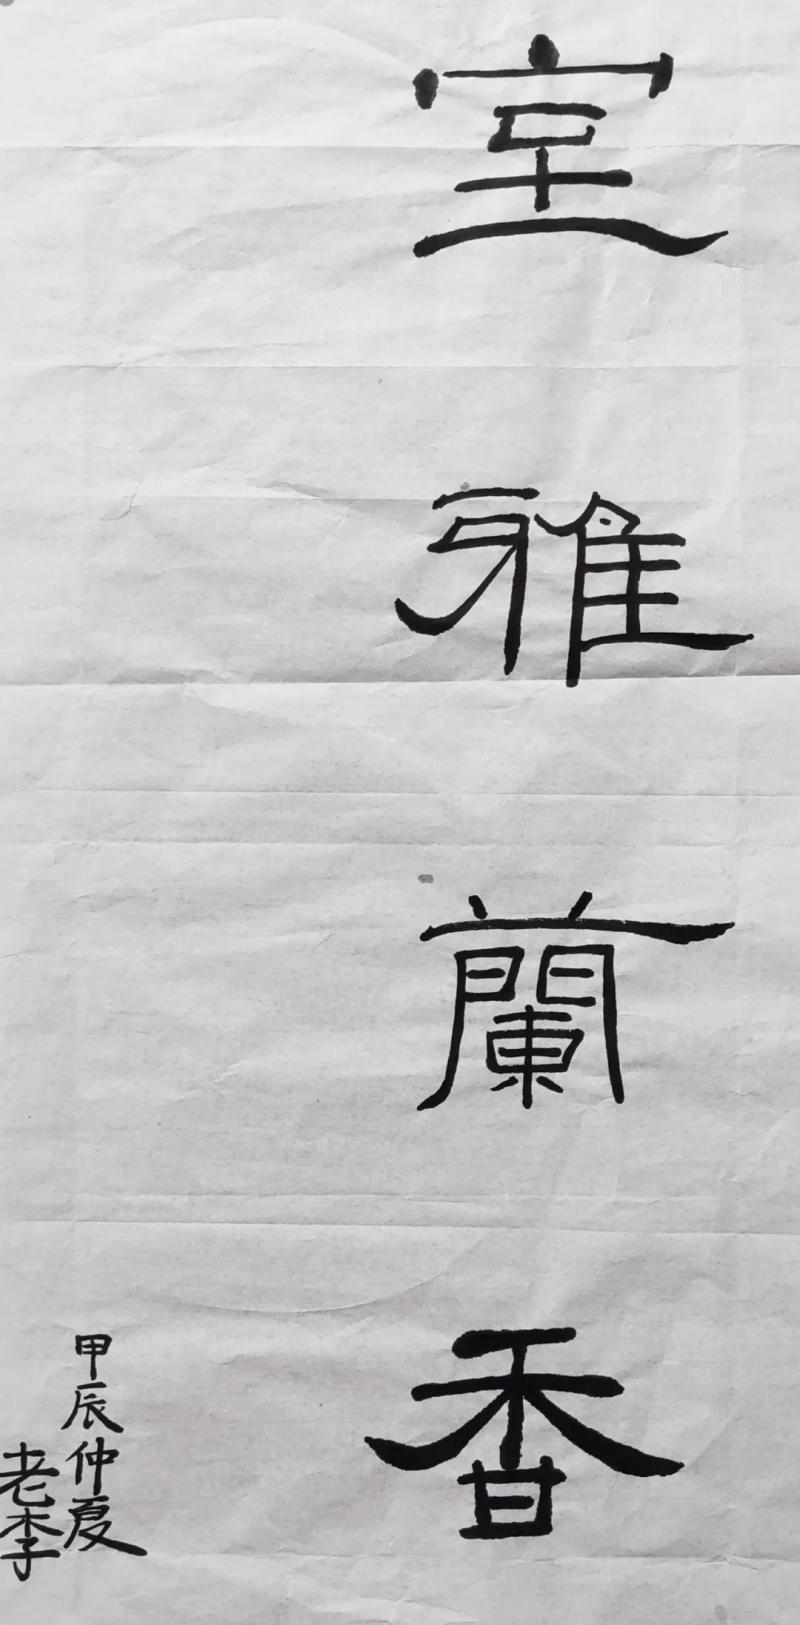 室雅蘭香
甲辰仲夏
老李